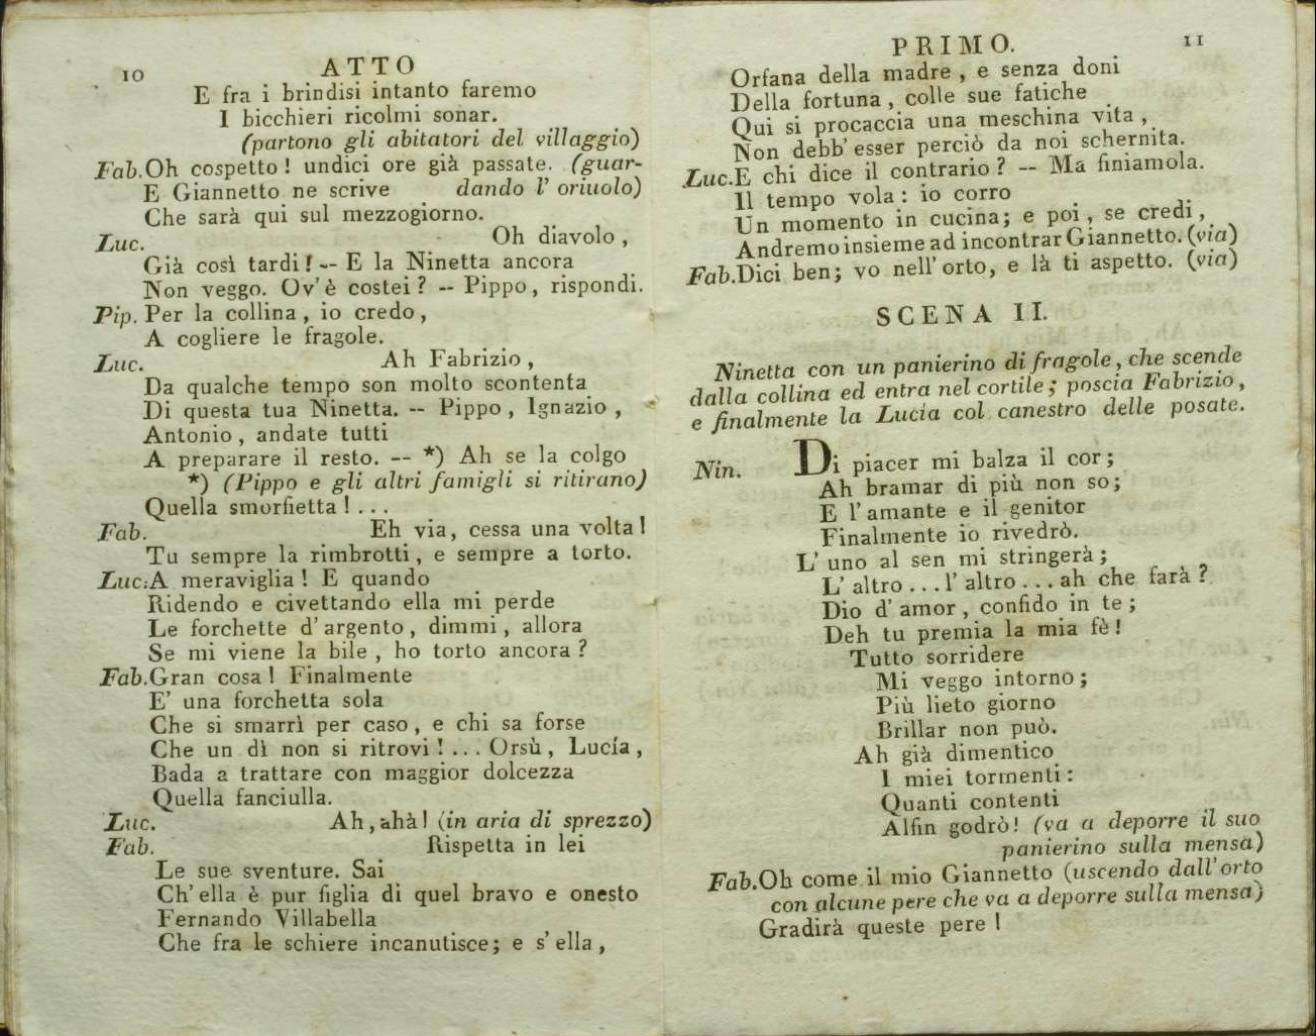 10
ATTO
E fra i brindisi intanto faremo
I bicchieri ricolmi sonar.
(partono gli abitatori del villaggio)
Fab. Oh cospetto! undici ore già passate. (guar-
E Giannetto ne scrive dando l' oriuolo)
Che sarà qui sul mezzogiorno.
Luc. Oh diavolo,
Già così tardi! -- E la Ninetta ancora
Non veggo. Ov'è costei? -- Pippo, rispondi.
Pip. Per la collina, io credo,
A cogliere le fragole.
Luc. Ah Fabrizio,
Da qualche tempo son molto scontenta
Di questa tua Ninetta. -- Pippo, Ignazio,
Antonio, andate tutti
A preparare il resto. -- *) Ah se la colgo
*) (Pippo e gli altri famigli si ritirano)
Quella smorfietta!...
Fab. Eh via, cessa una volta!
Tu sempre la rimbrotti, e sempre a torto.
Luc: A meraviglia! E quando
Ridendo e civettando ella mi perde
Le forchette d'argento, dimmi, allora
Se mi viene la bile, ho torto ancora?
Fab. Gran cosa! Finalmente
E' una forchetta sola
Che si smarrì per caso, e chi sa forse
Che un dì non si ritrovi!... Orsù, Lucía,
Bada a trattare con maggior dolcezza
Quella fanciulla.
Luc. Ah, ahà! (in aria di sprezzo)
Fab. Rispetta in lei
Le sue sventure. Sai
Ch'ella è pur figlia di quel bravo e onesto
Fernando Villabella
Che fra le schiere incanutisce; e s'ella,
PRIMO.
11
Orfana della madre, e senza doni
Della fortuna, colle sue fatiche
Qui si procaccia una meschina vita,
Non debb'esser perciò da noi schernita.
Luc. E chi dice il contrario? -- Ma finiamola.
Il tempo vola: io corro
Un momento in cucina; e poi, se credi,
Andremo insieme ad incontrar Giannetto. (via)
Fab. Dici ben; vo nell'orto, e là ti aspetto. (via)
SCENA II.
Ninetta con un panierino di fragole, che scende
dalla collina ed entra nel cortile; poscia Fabrizio,
e finalmente la Lucia col canestro delle posate.
Nin. Di piacer mi balza il cor;
Ah bramar di più non so;
E l'amante e il genitor
Finalmente io rivedrò.
L' uno al sen mi stringerà;
L' altro... l' altro... ah che farà?
Dio d'amor, confido in te;
Deh tu premia la mia fè!
Tutto sorridere
Mi veggo intorno;
Più lieto giorno
Brillar non può.
Ah già dimentico
I miei tormenti:
Quanti contenti
Alfin godrò! (va a deporre il suo
panierino sulla mensa)
Fab. Oh come il mio Giannetto (uscendo dall'orto
con alcune pere che va a deporre sulla mensa)
Gradirà queste pere!